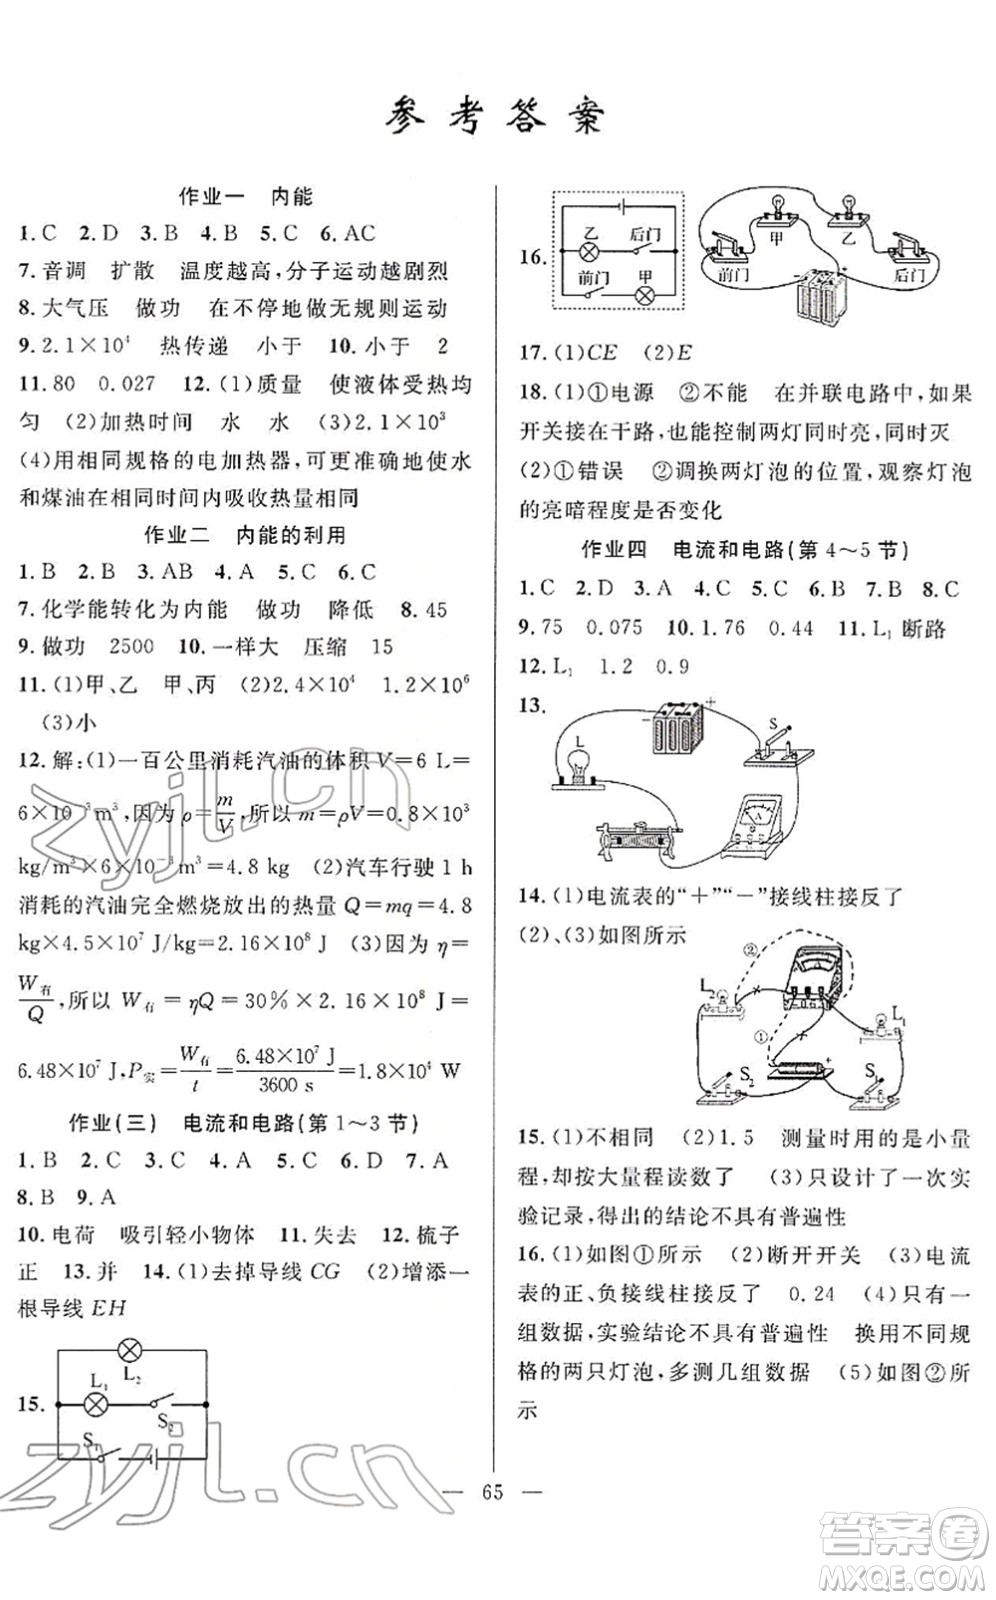 参考答案
作业一　内能
1.C　2.D　3.D　4.B　5.C　6.AC
7.音调　扩散　温度越高,分子运动越剧烈
8.大气压　做功　在不停地做无规则运动
9.2.1×10⁴　热传递　小于　10.小于　2
11.80　0.027　12.(1)质量　使液体受热均
匀　(2)加热时间　水　水　(3)2.1×10³
(4)用相同规格的电加热器,可更准确地使水
和煤油在相同时间内吸收热量相同
作业二　内能的利用
1.B　2.B　3.AB　4.A　5.B　6.B
7.化学能转化为内能　做功　降低　8.45
9.做功　2500　10.一样大　压缩　15
11.(1)甲、乙　甲、丙　(2)2.4×10⁴　1.2×10⁶
(3)小
12.解:(1)一百公里消耗汽油的体积V=6 L=
6×10⁻³m³,因为ρ=m/V,所以m=ρV=0.8×10³
kg/m³×6×10⁻³m³=4.8 kg　(2)汽车行驶1 h
消耗的汽油完全燃烧放出的热量Q=mq=4.8
kg×4.5×10⁷J/kg=2.16×10⁸ J　(3)因为η=
W有/Q,所以W有=ηQ=30%×2.16×10⁸ J=
6.48×10⁷ J,P实=W有/t=6.48×10⁷ J/3600 s=1.8×10⁴ W
作业(三)　电流和电路(第1～3节)
1.B　2.C　3.C　4.A　5.D　6.D　7.A
8.B　9.A
10.电荷　吸引轻小物体　11.失去　12.梳子
正　13.并　14.(1)去掉导线CG　(2)增添一
根导线EH
15.
L₂
L₁
S₂
S₁
16.
乙　后门
前门　甲
甲　乙
前门　后门
17.(1)CE　(2)E
18.(1)①电源　②不能　在并联电路中,如果
开关接在干路,也能控制两灯同时亮,同时灭
(2)①错误　②调换两灯泡的位置,观察灯泡
的亮暗程度是否变化
作业四　电流和电路(第4～5节)
1.C　2.D　3.A　4.A　5.C　6.B　7.B　8.C
9.75　0.075　10.1.76　0.44　11.L₁断路
12.L₁　1.2　0.9
13.
－　＋
S
L
A
14.(1)电流表的“＋”“－”接线柱接反了
(2)、(3)如图所示
②
L₂
L₁
①
S₂
S₁
15.(1)不相同　(2)1.5　测量时用的是小量
程,却按大量程读数了　(3)只设计了一次实
验记录,得出的结论不具有普遍性
16.(1)如图①所示　(2)断开开关　(3)电流
表的正、负接线柱接反了　0.24　(4)只有一
组数据,实验结论不具有普遍性　换用不同规
格的两只灯泡,多测几组数据　(5)如图②所
示
— 65 —
zyjl.cn
zyjl.cn
答案圈
MXQE.COM